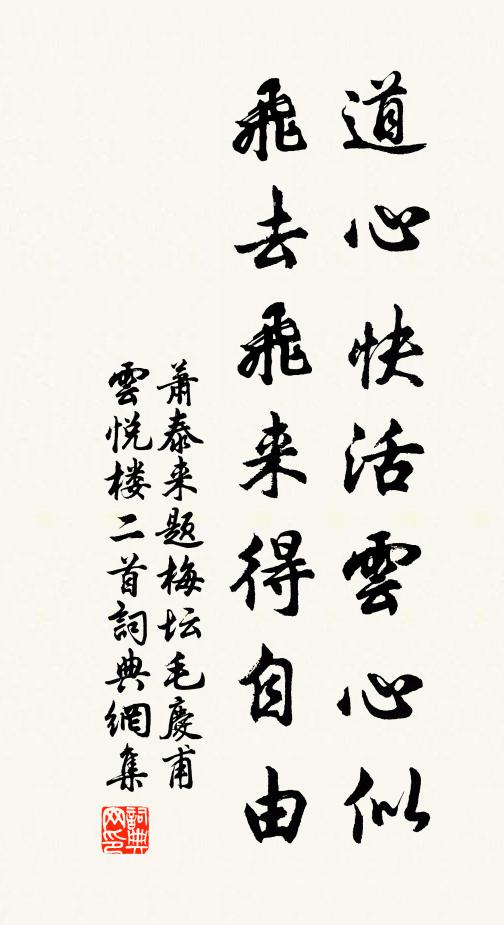 道心快活雲心似
飛去飛来得自由
萧泰来题梅坛毛慶甫
雲悦楼二首詞典網集
詞典网印